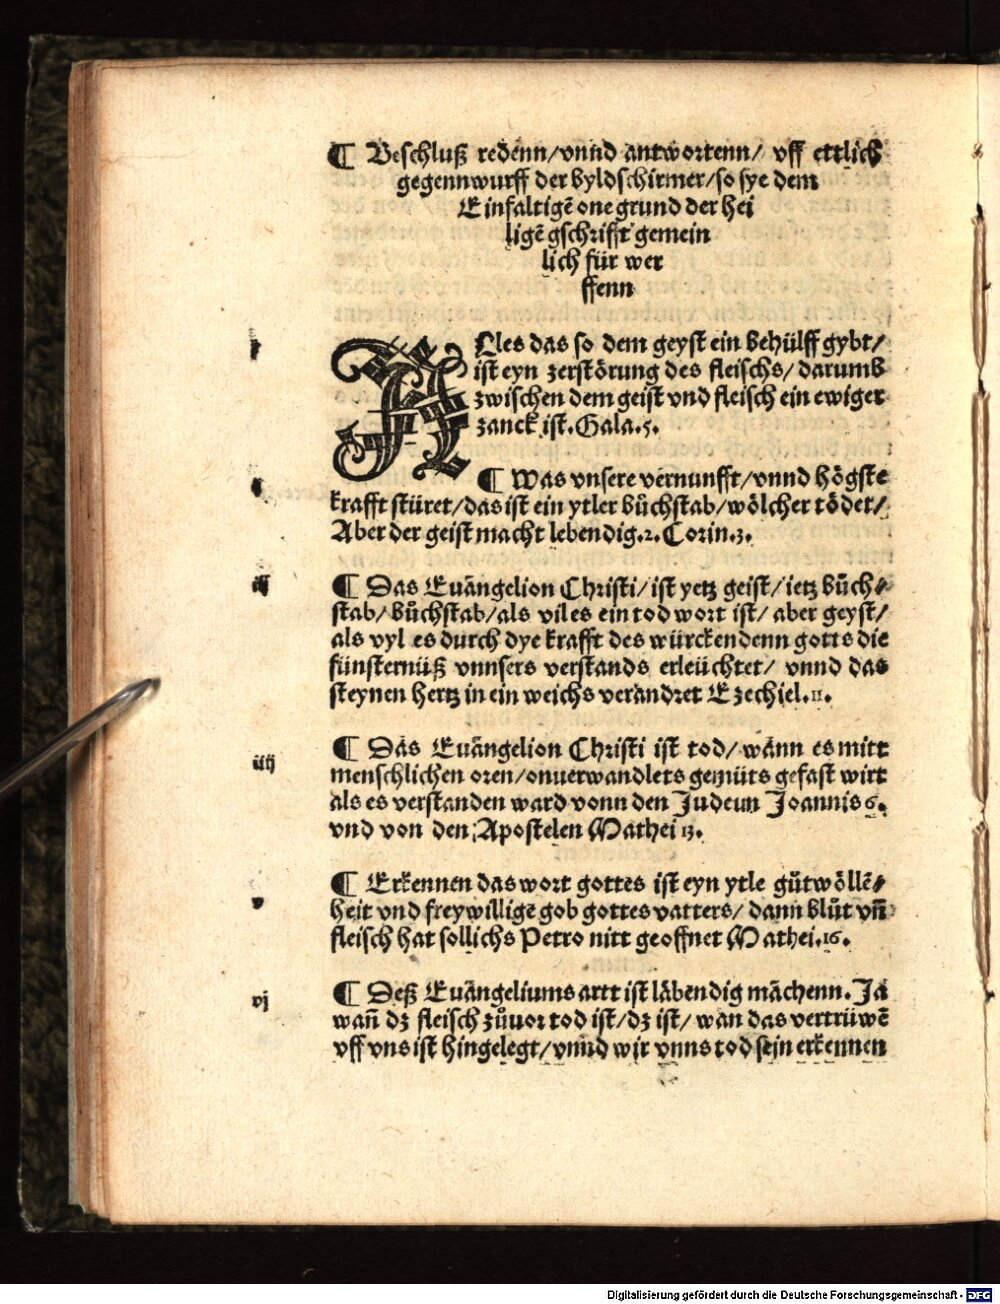 ¶ Beschluß redenn/vnnd antwortenn/ vff ettlich
gegennwurff der byldschirmer/so sye dem
Einfaltigē one grund der hei
ligē gschrifft gemein
lich für wer
ffenn
j
ALles das so dem geyst ein behülff gybt/
ist eyn zerstörung des fleischs/ darumb
zwischen dem geist vnd fleisch ein ewiger
zanck ist. Gala.5.
¶ Was vnsere vernunfft/vnnd högste
krafft stüret/das ist ein ytler bůchstab/wölcher tödet/
Aber der geist macht lebendig.2.Corin.3.
iij
¶ Das Euāngelion Christi/ist yetz geist/ietz bůch⸗
stab/bůchstab/als vil es ein tod wort ist/ aber geyst/
als vyl es durch dye krafft des würckendenn gotts die
fünsternüß vnnsers verstands erleüchtet/ vnnd das
steynen hertz in ein weichs verandret Ezechiel.11.
iiij
¶ Das Euāngelion Christi ist tod/wann es mitt
menschlichen oren/onuerwandlets gemüts gefast wirt
als es verstanden ward vonn den Judeun Joannis 6.
vnd von den Apostelen Mathei 13.
v
¶ Erkennen das wort gottes ist eyn ytle gůtwöllē⸗
heit vnd freywilligē gob gottes vatters/dann blůt vn̄
fleisch hat sollichs Petro nitt geoffnet Mathei.16.
vj
¶ Deß Euāngeliums artt ist läbendig māchenn. Ja
wan̄ dz fleisch zůuor tod ist/dz ist/ wan das vertrüwē
vff vns ist hingelegt/vnnd wir vnns tod sejn erkennen
Digitalisierung gefördert durch die Deutsche Forschungsgemeinschaft - DFG